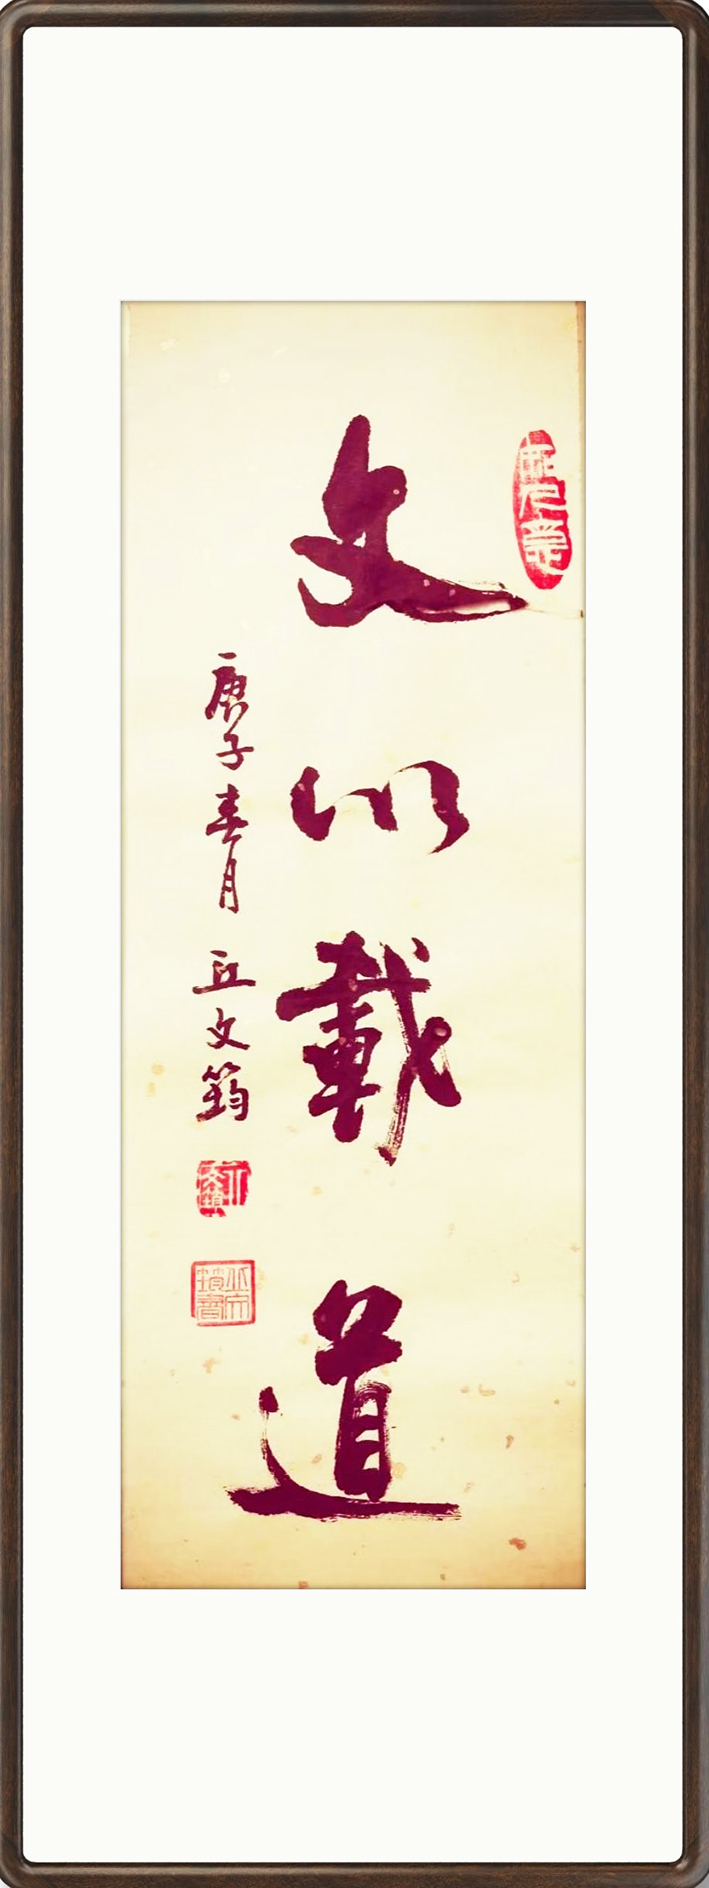 文以載道
庚子春月 丘文筠